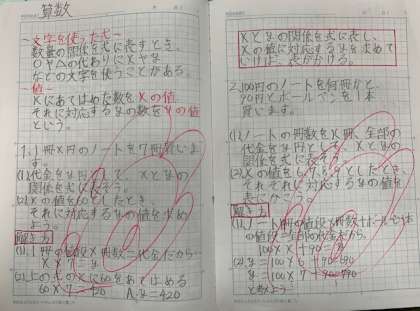 算数
～文字を使った式～
数量の関係を式に表すとき、
○や△の代わりにxやy
などの文字を使うことがある。
～値～
xにあてはめた数をxの値、
それに対応するyの数をyの値
という。
1、1冊x円のノートを7冊買いま
す。
(1)代金をy円として、xとyの
関係を式に表そう。
(2)xの値を60としたとき、
それに対応するyの値を求め
よう。
解き方
(1)、1冊の値段×冊数=代金だから…
x×7=y
(2)、上の式のxに60をあてはめる
60×7=420 A、y=420
xとyの関係を式に表し、
xの値に対応するyを求めて
いけば、表がかける。
2、100円のノートを何冊かと、
90円のボールペンを1本
買います。
(1)、ノートの冊数をx冊、全部の
代金をy円として、xとyの
関係を式に表そう。
(2)、xの値を6、7、8、としたとき、
それぞれに対応するyの値を
表にかこう。
解き方
(1)、ノートの値段×冊数+ボールペン1本
の値段=全部の代金だから、
100×x+90=y
(2)、y=100×6+90=690
y=100×7+90=790